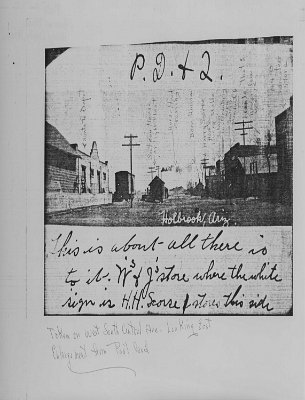 P. D. & Q.
Holbrook, Ariz.
This is about all there is
to it. W's & J's store where the white
sign is H.H. Scorse stores this side
Taken on West South Central Ave. Looking East
Enlargement from Post Card